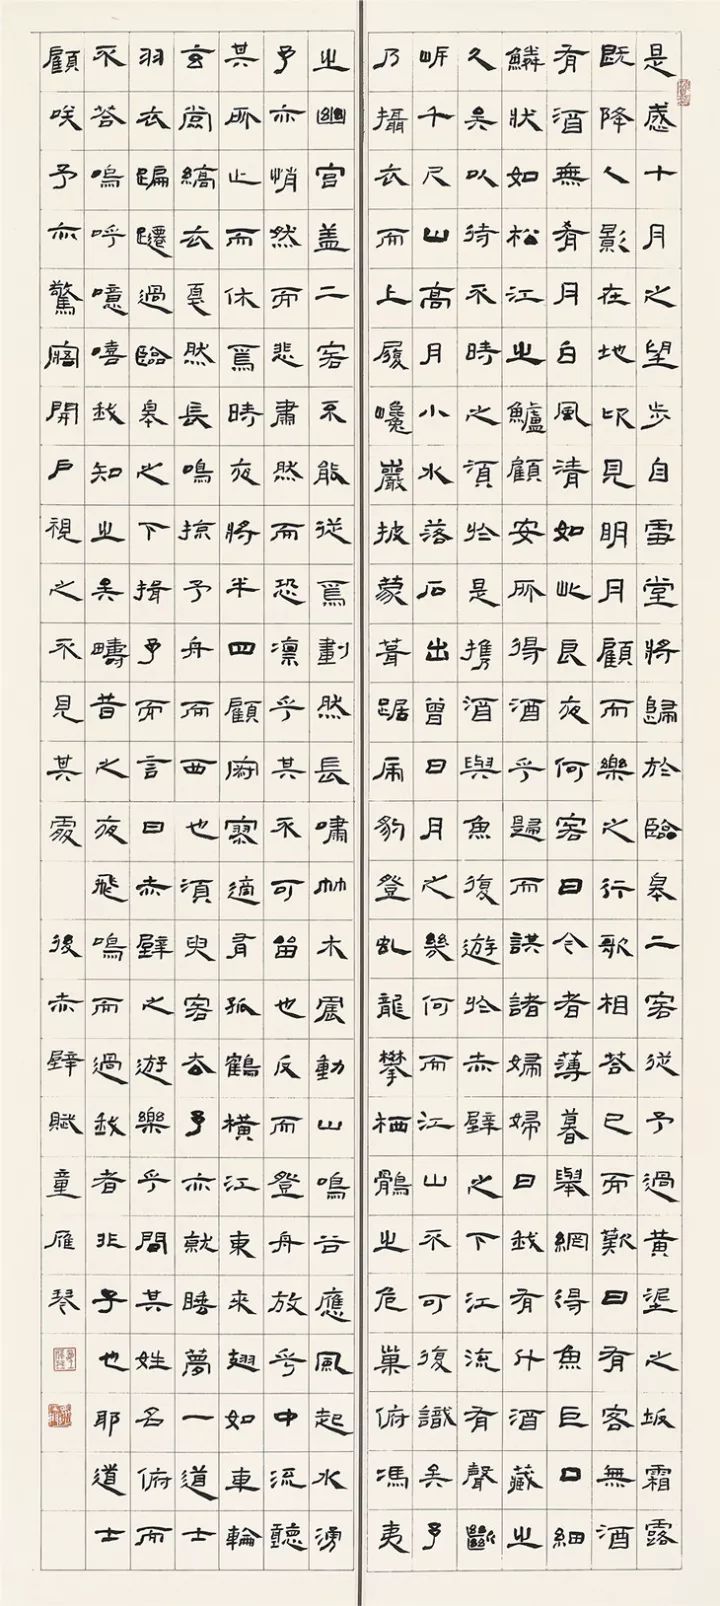 是歲十月之望步自雪堂將歸於臨皋二客從予過黃埿之坂霜露
既降人影在地仰見明月顧而樂之行歌相答已而歎曰有客無酒
有酒無肴月白風清如此良夜何客曰今者薄暮舉網得魚巨口細
鱗狀如松江之鱸顧安所得酒乎歸而謀諸婦婦曰我有斗酒藏之
久矣以待不時之須於是攜酒與魚復遊於赤壁之下江流有聲斷
岸千尺山高月小水落石出曾日月之幾何而江山不可復識矣予
乃攝衣而上履巉巖披蒙茸踞虎豹登虬龍攀栖鶻之危巢俯馮夷
之幽宮盖二客不能從焉劃然長嘯艸木震動山鳴谷應風起水湧
予亦悄然而悲肅然而恐凜乎其不可留也反而登舟放乎中流聽
其所止而休焉時夜將半四顧寂寥適有孤鶴橫江東來翅如車輪
玄裳縞衣戛然長鳴掠予舟而西也須臾客去予亦就睡夢一道士
羽衣蹁躚過臨皋之下揖予而言曰赤壁之遊樂乎問其姓名俯而
不答嗚呼噫嘻我知之矣疇昔之夜飛鳴而過我者非子也耶道士
顧咲予亦驚寤開戶視之不見其處 後赤壁賦童雁琴